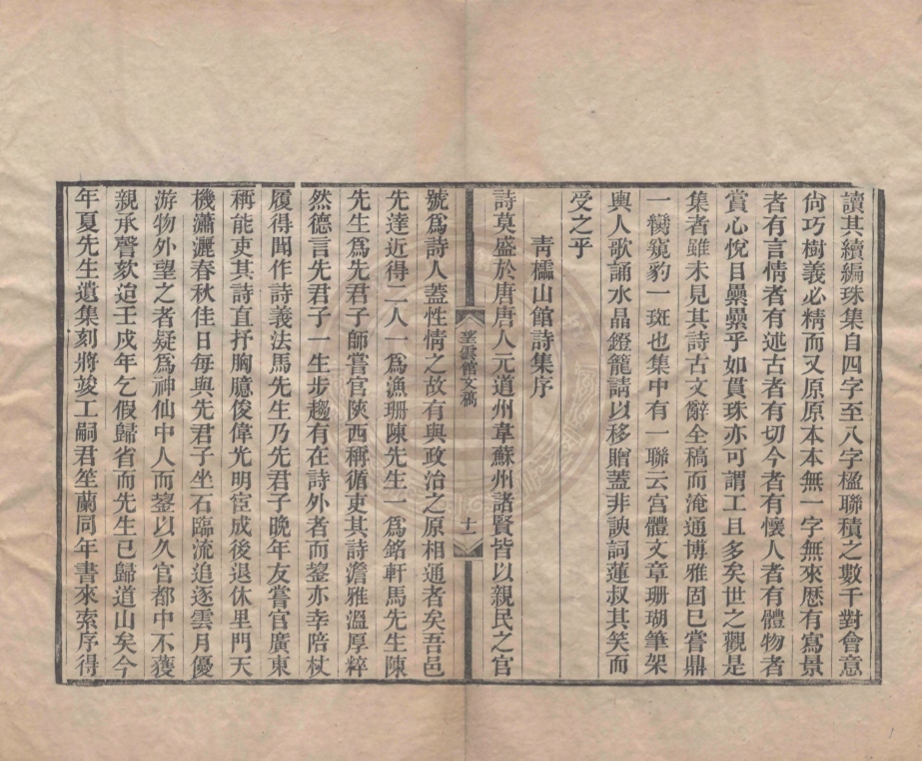 讀其續編珠集自四字至八字楹聯積之數千對會意
尙巧樹義必精而又原原本本無一字無來歷有寫景
者有言情者有述古者有切今者有懷人者有體物者
賞心悅目纍纍乎如貫珠亦可謂工且多矣世之觀是
集者雖未見其詩古文辭全稿而淹通博雅固已嘗鼎
一臠窺豹一斑也集中有一聯云宮體文章珊瑚筆架
輿人歌誦水晶鐙籠請以移贈蓋非諛詞蓮叔其笑而
受之乎
靑櫺山館詩集序
詩莫盛於唐唐人元道州韋蘇州諸賢皆以親民之官
文稿
十一
號爲詩人蓋性情之故有與政治之原相通者矣吾邑
先達近得二人一爲漁珊陳先生一爲銘軒馬先生陳
先生爲先君子師嘗官陝西稱循吏其詩澹雅溫厚粹
然德言先君子一生步趨有在詩外者而鋆亦幸陪杖
履得聞作詩義法馬先生乃先君子晚年友嘗官廣東
稱能吏其詩直抒胸臆俊偉光明宦成後退休里門天
機瀟灑春秋佳日每與先君子坐石臨流追逐雲月優
游物外望之者疑爲神仙中人而鋆以久官都中不獲
親承謦欬迨壬戌年乞假歸省而先生已歸道山矣今
年夏先生遺集刻將竣工嗣君笙蘭同年書來索序得